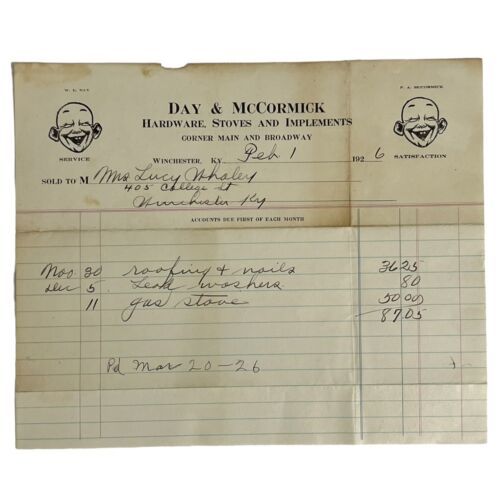 W. L. DAY
F. A. McCORMICK
DAY & McCORMICK
HARDWARE, STOVES AND IMPLEMENTS
CORNER MAIN AND BROADWAY
SERVICE
SATISFACTION
WINCHESTER, KY. Feb 1 1926
SOLD TO M Mrs Lucy Whaley
405 College st
Winchester Ky
ACCOUNTS DUE FIRST OF EACH MONTH
Nov 30 roofing & nails 36 25
Dec 5 Lead washers 80
11 gas stove 50 00
87 05
Pd Mar 20-26